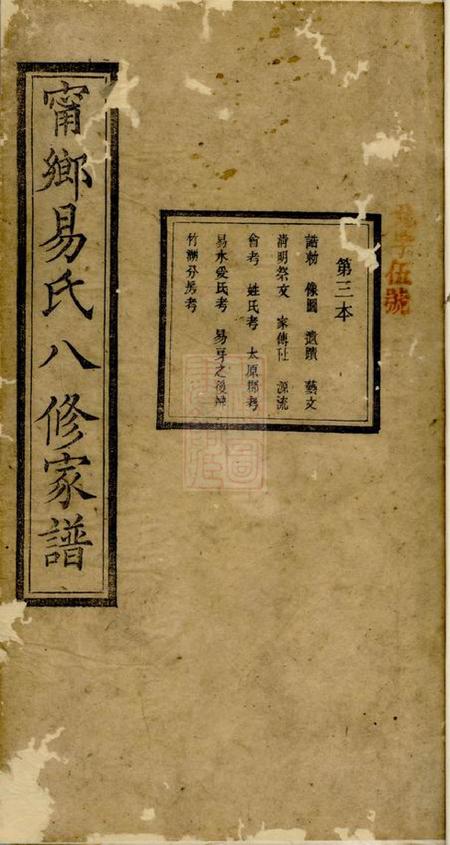 伍號
第三本
誥勅 像圖 遺蹟 藝文
清明祭文 家傳 源流
會考 姓氏考 太原郡考
易水爰氏考 易牙之後辨
竹湖分房考
甯鄉易氏八修家譜